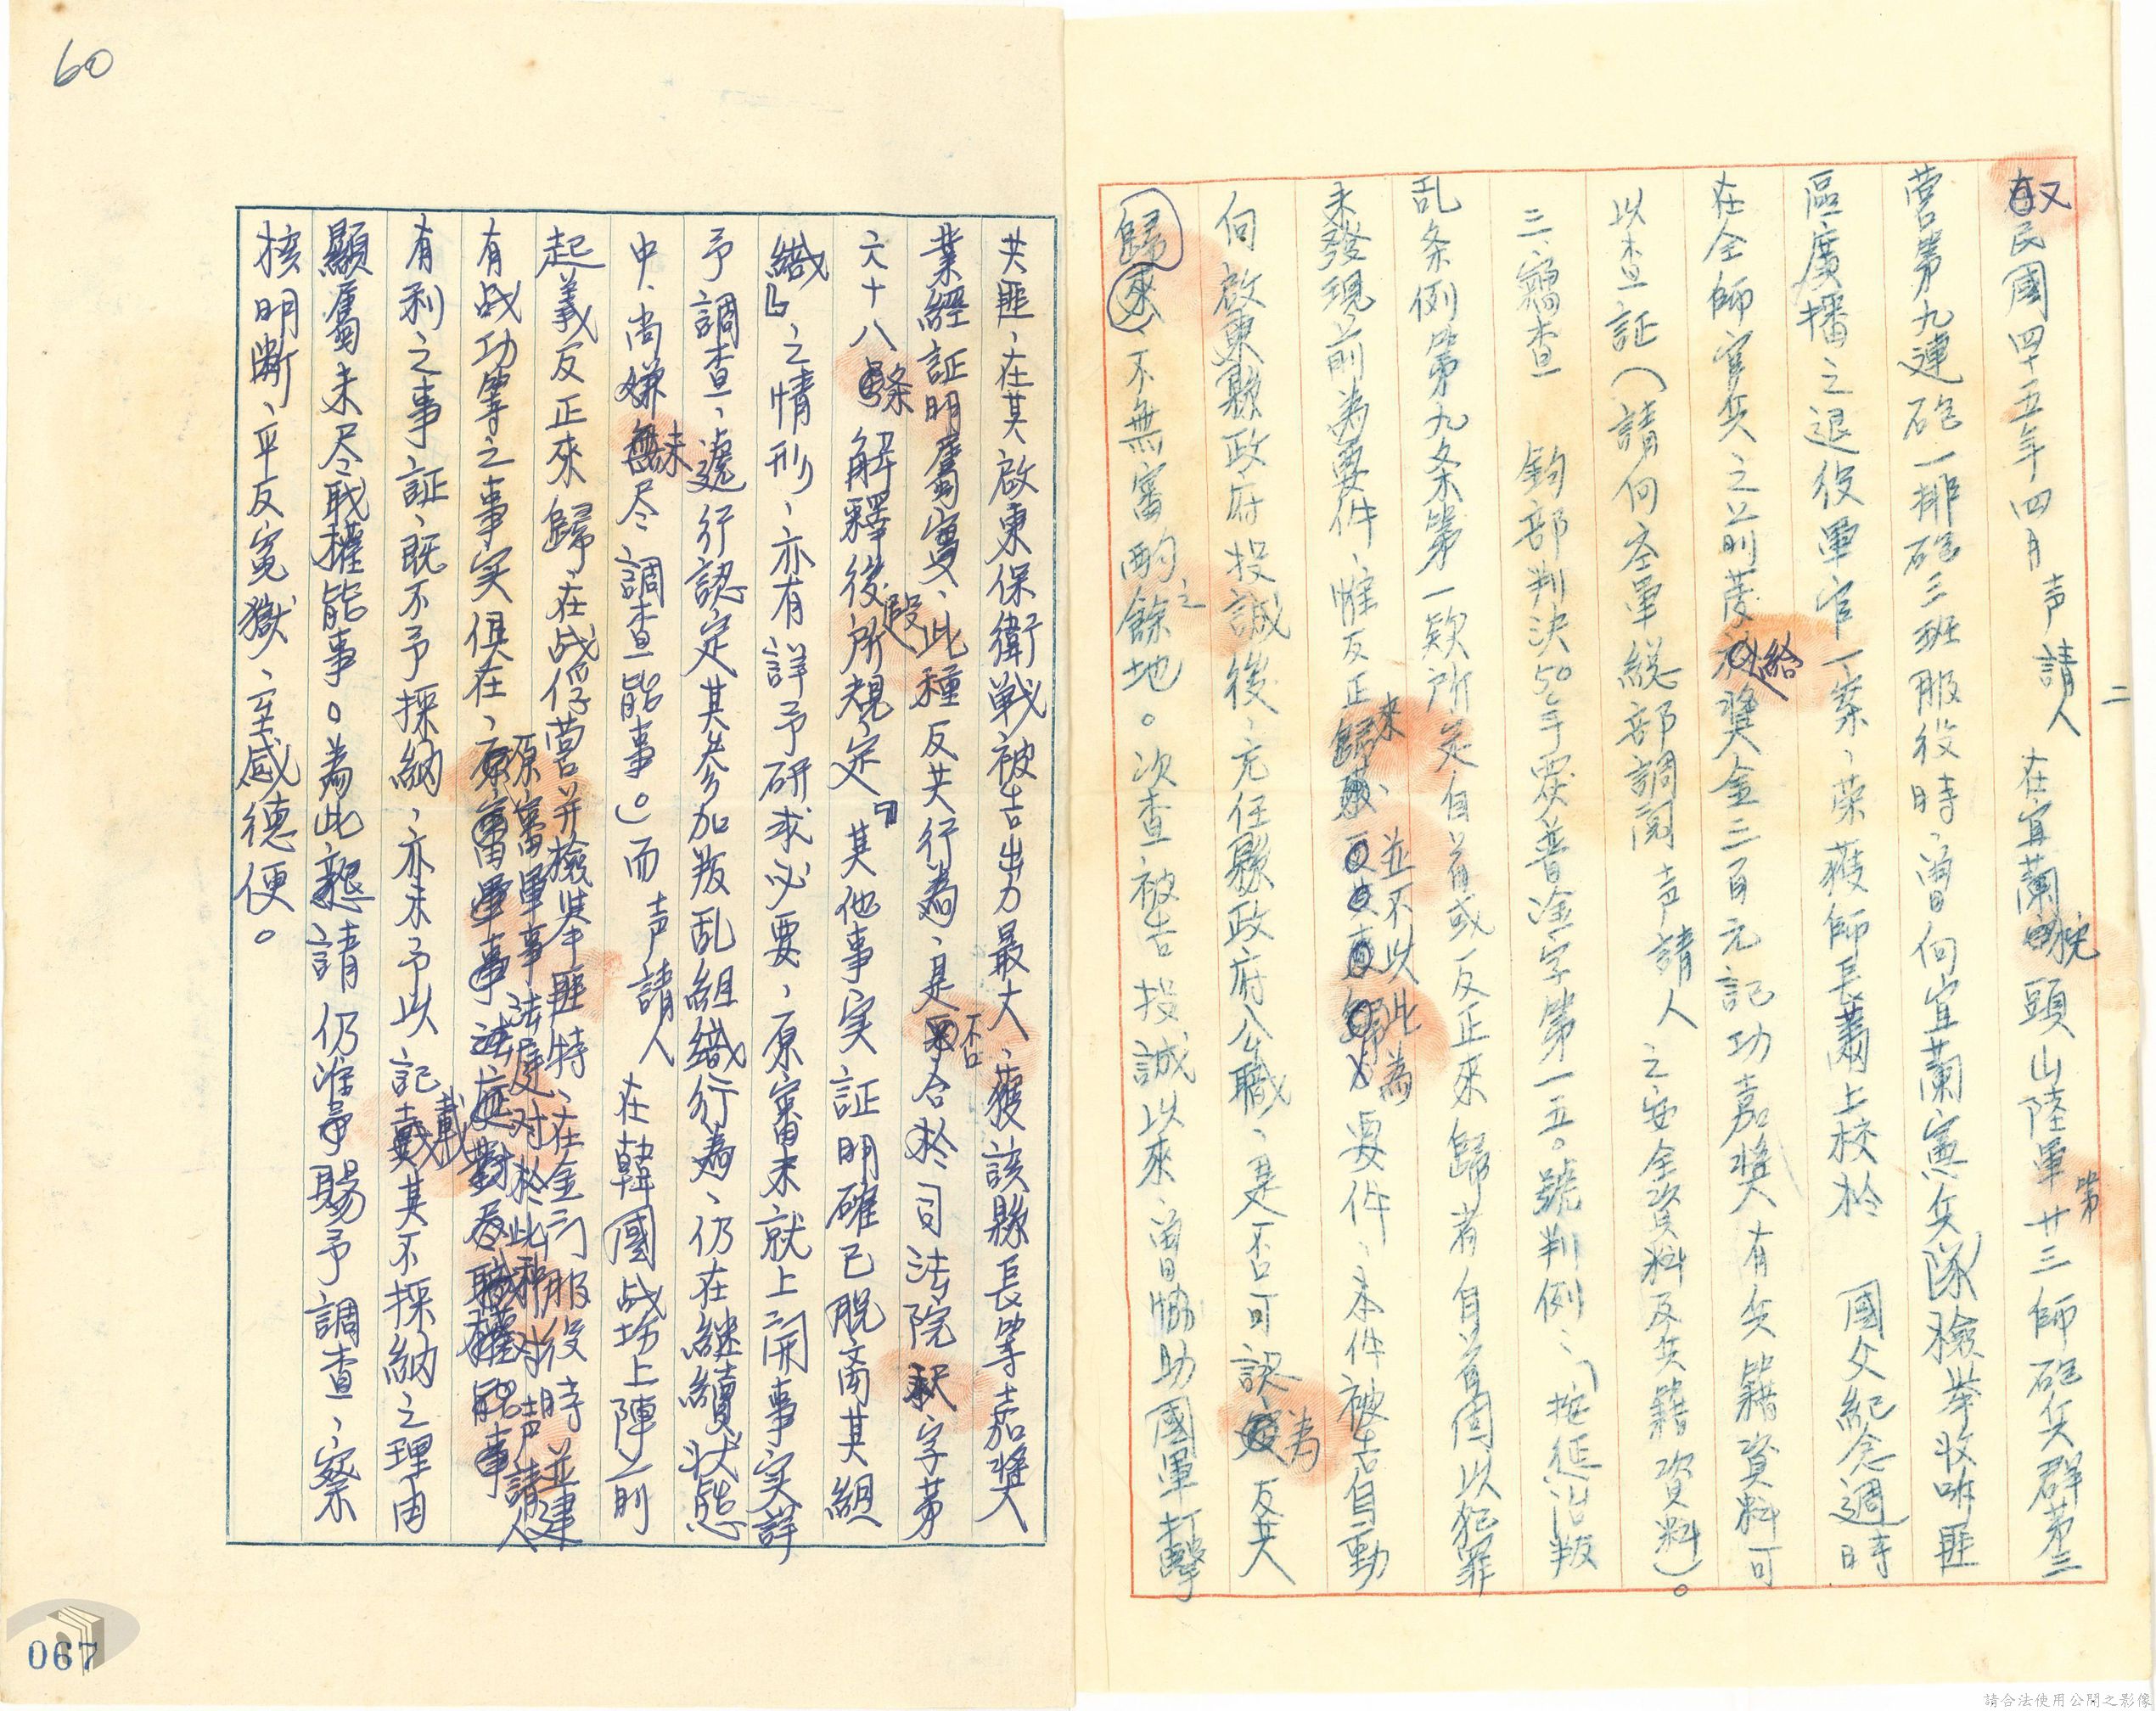 二
又民國四十五年四月 声請人 在宜蘭枕頭山陸軍第廿三師砲兵群第三
營第九連砲一排砲三班服役時、曾向宜蘭憲兵隊檢举收听匪
區廣播之退役軍官一案、荣獲師長蕭上校於 國父紀念週時
在全師官兵之前發給獎金三百元記功嘉獎有兵籍資料可
以查証（請向本軍總部調閱 声請人 之安全資料及兵籍資料）。
三、竊查 鈞部判決50年覆普淦字第一五0號判例：「按延治叛
乱条例第九条第一欵所定自首或反正來歸者自首固以犯罪
未發現前為要件、惟反正來歸、並不以此為要件、本件被告自動
向啟東縣政府投誠後、充任縣政府公職、是否可認為反共
歸來、不無審酌之餘地。次查被告投誠以來、曾協助國軍打擊
60
共匪、在其啟東保衛戰被告出力最大、獲該縣長等嘉獎
業經証明屬實、此種反共行為、是否合於司法院釈字第
六十八條解釋後段所規定『其他事実証明確已脫离其組
織』之情形、亦有詳予研求必要、原審未就上開事实詳
予調查、遽行認定其参加叛乱組織行為、仍在継續状態
中、尚嫌未尽調查能事。」而 声請人 在韓國战場上陣前
起義反正來歸、在战俘營并檢举匪特、在金门服役時並建
有战功等之事实俱在、原審軍事法庭对於此種对声請人
有利之事証、既不予採納、亦未予以記載其不採納之理由
顯屬未尽职權能事。為此懇請仍准予賜予調查、察
核明断、平反寃獄、至感德便。
067
請合法使用公開之影像